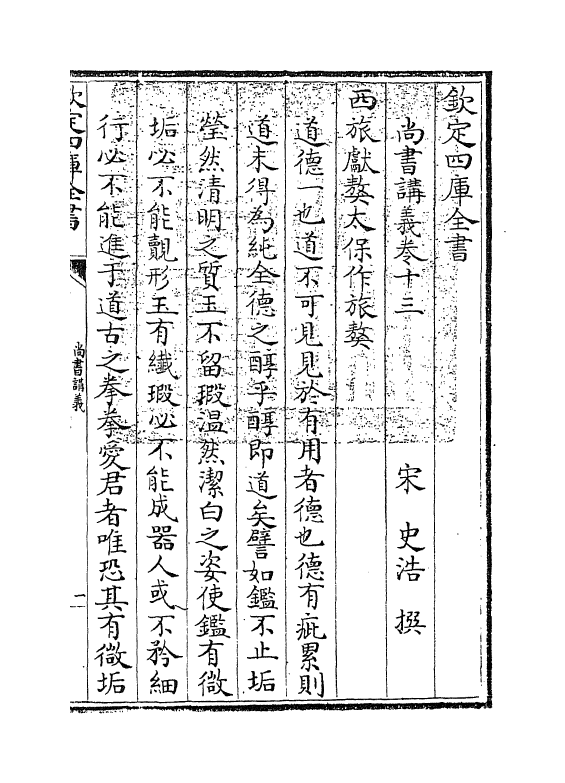 欽定四庫全書
尚書講義卷十三
宋 史浩 撰
西旅獻獒太保作旅獒
道德一也道不可見見於有用者德也德有疵累則
道未得為純全德之醇乎醇即道矣譬如鑑不止垢
瑩然清明之質玉不留瑕温然潔白之姿使鑑有微
垢必不能覿形玉有纎瑕必不能成器人或不矜細
行必不能進于道古之拳拳愛君者唯恐其有微垢
欽定四庫全書
尚書講義
一